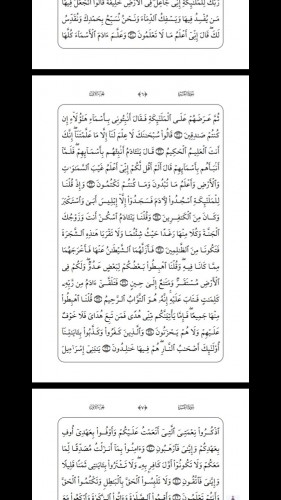 رَبُّكَ لِلْمَلَٰٓئِكَةِ إِنِّى جَاعِلٌ فِى ٱلْأَرْضِ خَلِيفَةً قَالُوٓا۟ أَتَجْعَلُ فِيهَا
مَن يُفْسِدُ فِيهَا وَيَسْفِكُ ٱلدِّمَآءَ وَنَحْنُ نُسَبِّحُ بِحَمْدِكَ وَنُقَدِّسُ
لَكَ قَالَ إِنِّىٓ أَعْلَمُ مَا لَا تَعْلَمُونَ ۝٣٠ وَعَلَّمَ ءَادَمَ ٱلْأَسْمَآءَ كُلَّهَا
﴿٦﴾
ثُمَّ عَرَضَهُمْ عَلَى ٱلْمَلَٰٓئِكَةِ فَقَالَ أَنۢبِـُٔونِى بِأَسْمَآءِ هَٰٓؤُلَآءِ إِن
كُنتُمْ صَٰدِقِينَ ۝٣١ قَالُوا۟ سُبْحَٰنَكَ لَا عِلْمَ لَنَآ إِلَّا مَا عَلَّمْتَنَآ إِنَّكَ
أَنتَ ٱلْعَلِيمُ ٱلْحَكِيمُ ۝٣٢ قَالَ يَٰٓـَٔادَمُ أَنۢبِئْهُم بِأَسْمَآئِهِمْ فَلَمَّآ
أَنۢبَأَهُم بِأَسْمَآئِهِمْ قَالَ أَلَمْ أَقُل لَّكُمْ إِنِّىٓ أَعْلَمُ غَيْبَ ٱلسَّمَٰوَٰتِ
وَٱلْأَرْضِ وَأَعْلَمُ مَا تُبْدُونَ وَمَا كُنتُمْ تَكْتُمُونَ ۝٣٣ وَإِذْ قُلْنَا
لِلْمَلَٰٓئِكَةِ ٱسْجُدُوا۟ لِـَٔادَمَ فَسَجَدُوٓا۟ إِلَّآ إِبْلِيسَ أَبَىٰ وَٱسْتَكْبَرَ
وَكَانَ مِنَ ٱلْكَٰفِرِينَ ۝٣٤ وَقُلْنَا يَٰٓـَٔادَمُ ٱسْكُنْ أَنتَ وَزَوْجُكَ
ٱلْجَنَّةَ وَكُلَا مِنْهَا رَغَدًا حَيْثُ شِئْتُمَا وَلَا تَقْرَبَا هَٰذِهِ ٱلشَّجَرَةَ
فَتَكُونَا مِنَ ٱلظَّٰلِمِينَ ۝٣٥ فَأَزَلَّهُمَا ٱلشَّيْطَٰنُ عَنْهَا فَأَخْرَجَهُمَا
مِمَّا كَانَا فِيهِ وَقُلْنَا ٱهْبِطُوا۟ بَعْضُكُمْ لِبَعْضٍ عَدُوٌّ وَلَكُمْ فِى
ٱلْأَرْضِ مُسْتَقَرٌّ وَمَتَٰعٌ إِلَىٰ حِينٍ ۝٣٦ فَتَلَقَّىٰٓ ءَادَمُ مِن رَّبِّهِۦ
كَلِمَٰتٍ فَتَابَ عَلَيْهِ إِنَّهُۥ هُوَ ٱلتَّوَّابُ ٱلرَّحِيمُ ۝٣٧ قُلْنَا ٱهْبِطُوا۟
مِنْهَا جَمِيعًا فَإِمَّا يَأْتِيَنَّكُم مِّنِّى هُدًى فَمَن تَبِعَ هُدَاىَ فَلَا خَوْفٌ
عَلَيْهِمْ وَلَا هُمْ يَحْزَنُونَ ۝٣٨ وَٱلَّذِينَ كَفَرُوا۟ وَكَذَّبُوا۟ بِـَٔايَٰتِنَآ
أُو۟لَٰٓئِكَ أَصْحَٰبُ ٱلنَّارِ هُمْ فِيهَا خَٰلِدُونَ ۝٣٩ يَٰبَنِىٓ إِسْرَٰٓءِيلَ
﴿٧﴾
ٱذْكُرُوا۟ نِعْمَتِىَ ٱلَّتِىٓ أَنْعَمْتُ عَلَيْكُمْ وَأَوْفُوا۟ بِعَهْدِىٓ أُوفِ
بِعَهْدِكُمْ وَإِيَّٰىَ فَٱرْهَبُونِ ۝٤٠ وَءَامِنُوا۟ بِمَآ أَنزَلْتُ مُصَدِّقًا لِّمَا
مَعَكُمْ وَلَا تَكُونُوٓا۟ أَوَّلَ كَافِرٍۭ بِهِۦ وَلَا تَشْتَرُوا۟ بِـَٔايَٰتِى ثَمَنًا قَلِيلًا
وَإِيَّٰىَ فَٱتَّقُونِ ۝٤١ وَلَا تَلْبِسُوا۟ ٱلْحَقَّ بِٱلْبَٰطِلِ وَتَكْتُمُوا۟ ٱلْحَقَّ
وَأَنتُمْ تَعْلَمُونَ ۝٤٢ وَأَقِيمُوا۟ ٱلصَّلَوٰةَ وَءَاتُوا۟ ٱلزَّكَوٰةَ وَٱرْكَعُوا۟ مَعَ